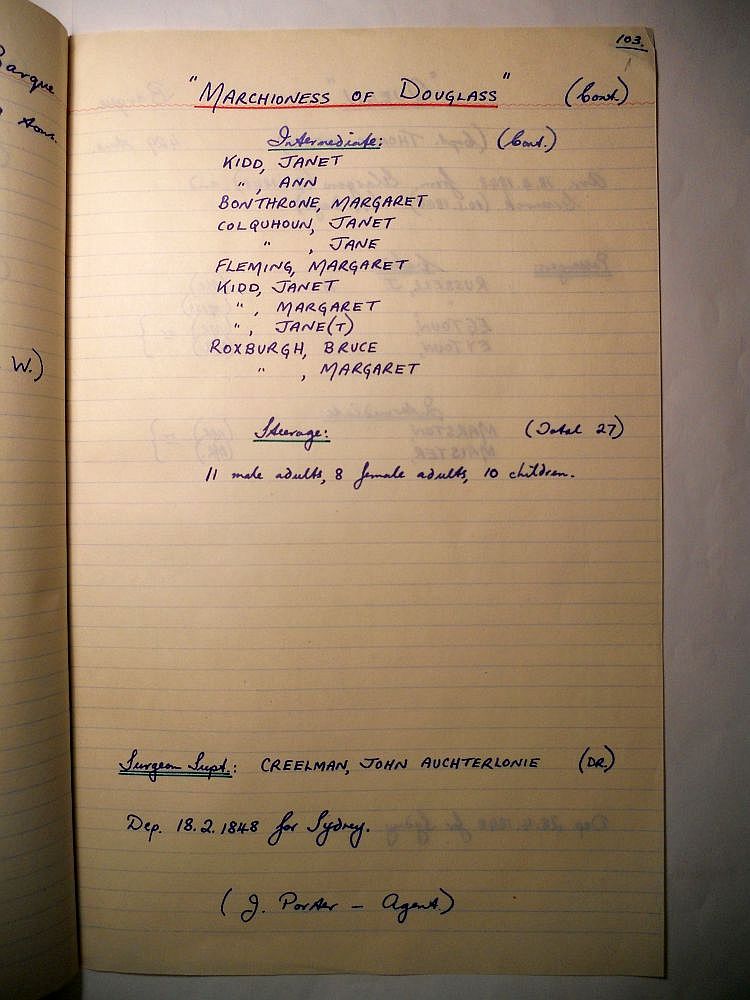 Barque
tons.
W.)
103.
"MARCHIONESS OF DOUGLASS" (Cont.)
Intermediate: (Cont.)
KIDD, JANET
" , ANN
BONTHRONE, MARGARET
COLQUHOUN, JANET
" , JANE
FLEMING, MARGARET
KIDD, JANET
" , MARGARET
" , JANE(T)
ROXBURGH, BRUCE
" , MARGARET
Steerage: (Total 27)
11 male adults, 8 female adults, 10 children.
Surgeon Supt.: CREELMAN, JOHN AUCHTERLONIE (DR.)
Dep. 18.2.1848 for Sydney.
(J. Porter - Agent.)